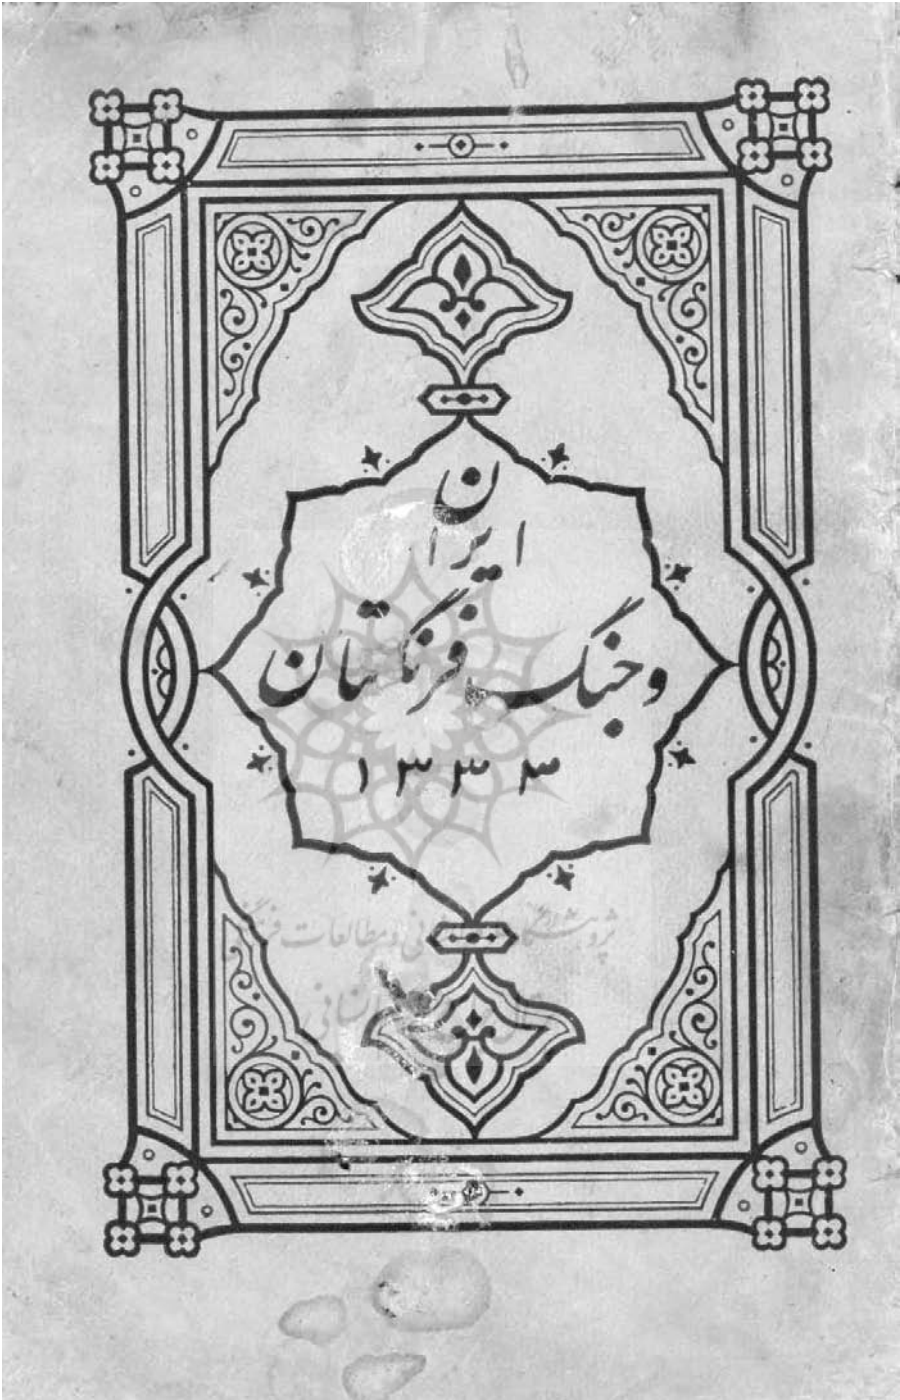 ایران
و جنگ فرنگستان
۱۳۳۳
پژوهشگاه علوم انسانی و مطالعات فرهنگی